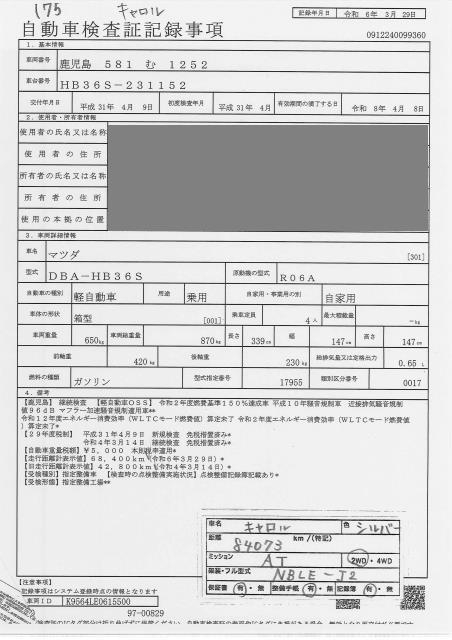 175 キャロル
記録年月日 令和 6年 3月 29日
自動車検査証記録事項
0912240099360
1. 基本情報
車両番号 鹿児島 581 む 1252
車台番号 HB36S-231152
交付年月日 平成 31年 4月 9日 初度検査年月 平成 31年 4月 有効期間の満了する日 令和 8年 4月 8日
2. 使用者・所有者情報
使用者の氏名又は名称
使用者の住所
所有者の氏名又は名称
所有者の住所
使用の本拠の位置
3. 車両詳細情報
車名 マツダ [301]
型式 DBA-HB36S 原動機の型式 R06A
自動車の種別 軽自動車 用途 乗用 自家用・事業用の別 自家用
車体の形状 箱型 [001] 乗車定員 4人 最大積載量 -kg
車両重量 650kg 車両総重量 870kg 長さ 339cm 幅 147cm 高さ 147cm
前軸重 420kg 後軸重 230kg 総排気量又は定格出力 0.65 L
燃料の種類 ガソリン 型式指定番号 17955 類別区分番号 0017
4. 備考
【鹿児島】 継続検査 【軽自動車OSS】 令和2年度燃費基準150%達成車 平成10年騒音規制車 近接排気騒音規制
値96dB マフラー加速騒音規制適用車**
令和12年度エネルギー消費効率(WLTCモード燃費値)算定未了 令和2年度エネルギー消費効率(WLTCモード燃費値
)算定未了*
【29年度税制】 平成31年4月9日 新規検査 免税措置済み*
令和4年3月14日 継続検査 免税措置済み*
【自動車重量税額】¥5,000 本則税率適用*
【走行距離計表示値】68,400km(令和6年3月29日)*
【旧走行距離計表示値】42,800km(令和4年3月14日)*
【受検種別】指定整備車 【検査時の点検整備実施状況】点検整備記録簿記載あり*
【受検形態】指定整備工場**
車名 キャロル 色 シルバー
距離 84073 km/(特記)
ミッション AT 2WD・4WD
架装・フル型式 NBLE-J2
保証書 有・無 整備手帳 有・無 記録簿 有・無
【注意事項】
記録事項はシステム登録時点の情報となります
車両ID K9564LE0615500
97-00829